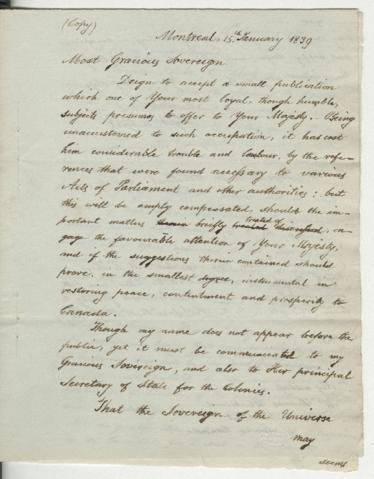 (Copy)
Montreal 15th January 1839
Most Gracious Sovereign
Deign to accept a small publication
which one of Your most loyal, though humble,
subjects presumes to offer to Your Majesty. Being
unaccustomed to such occupation, it has cost
him considerable trouble and labour, by the refe-
rences that were found necessary to various
Acts of Parliament and other authorities: but
this will be amply compensated should the im-
portant matters therein briefly treated of, en-
gage the favourable attention of Your Majesty,
and if the suggestions therein contained should
prove, in the smallest degree, instrumental in
restoring peace, contentment and prosperity to
Canada.
Though my name does not appear before the
public, yet it must be communicated to my
Gracious Sovereign, and also to Her principal
Secretary of State for the Colonies.
That the Sovereign of the Universe
may